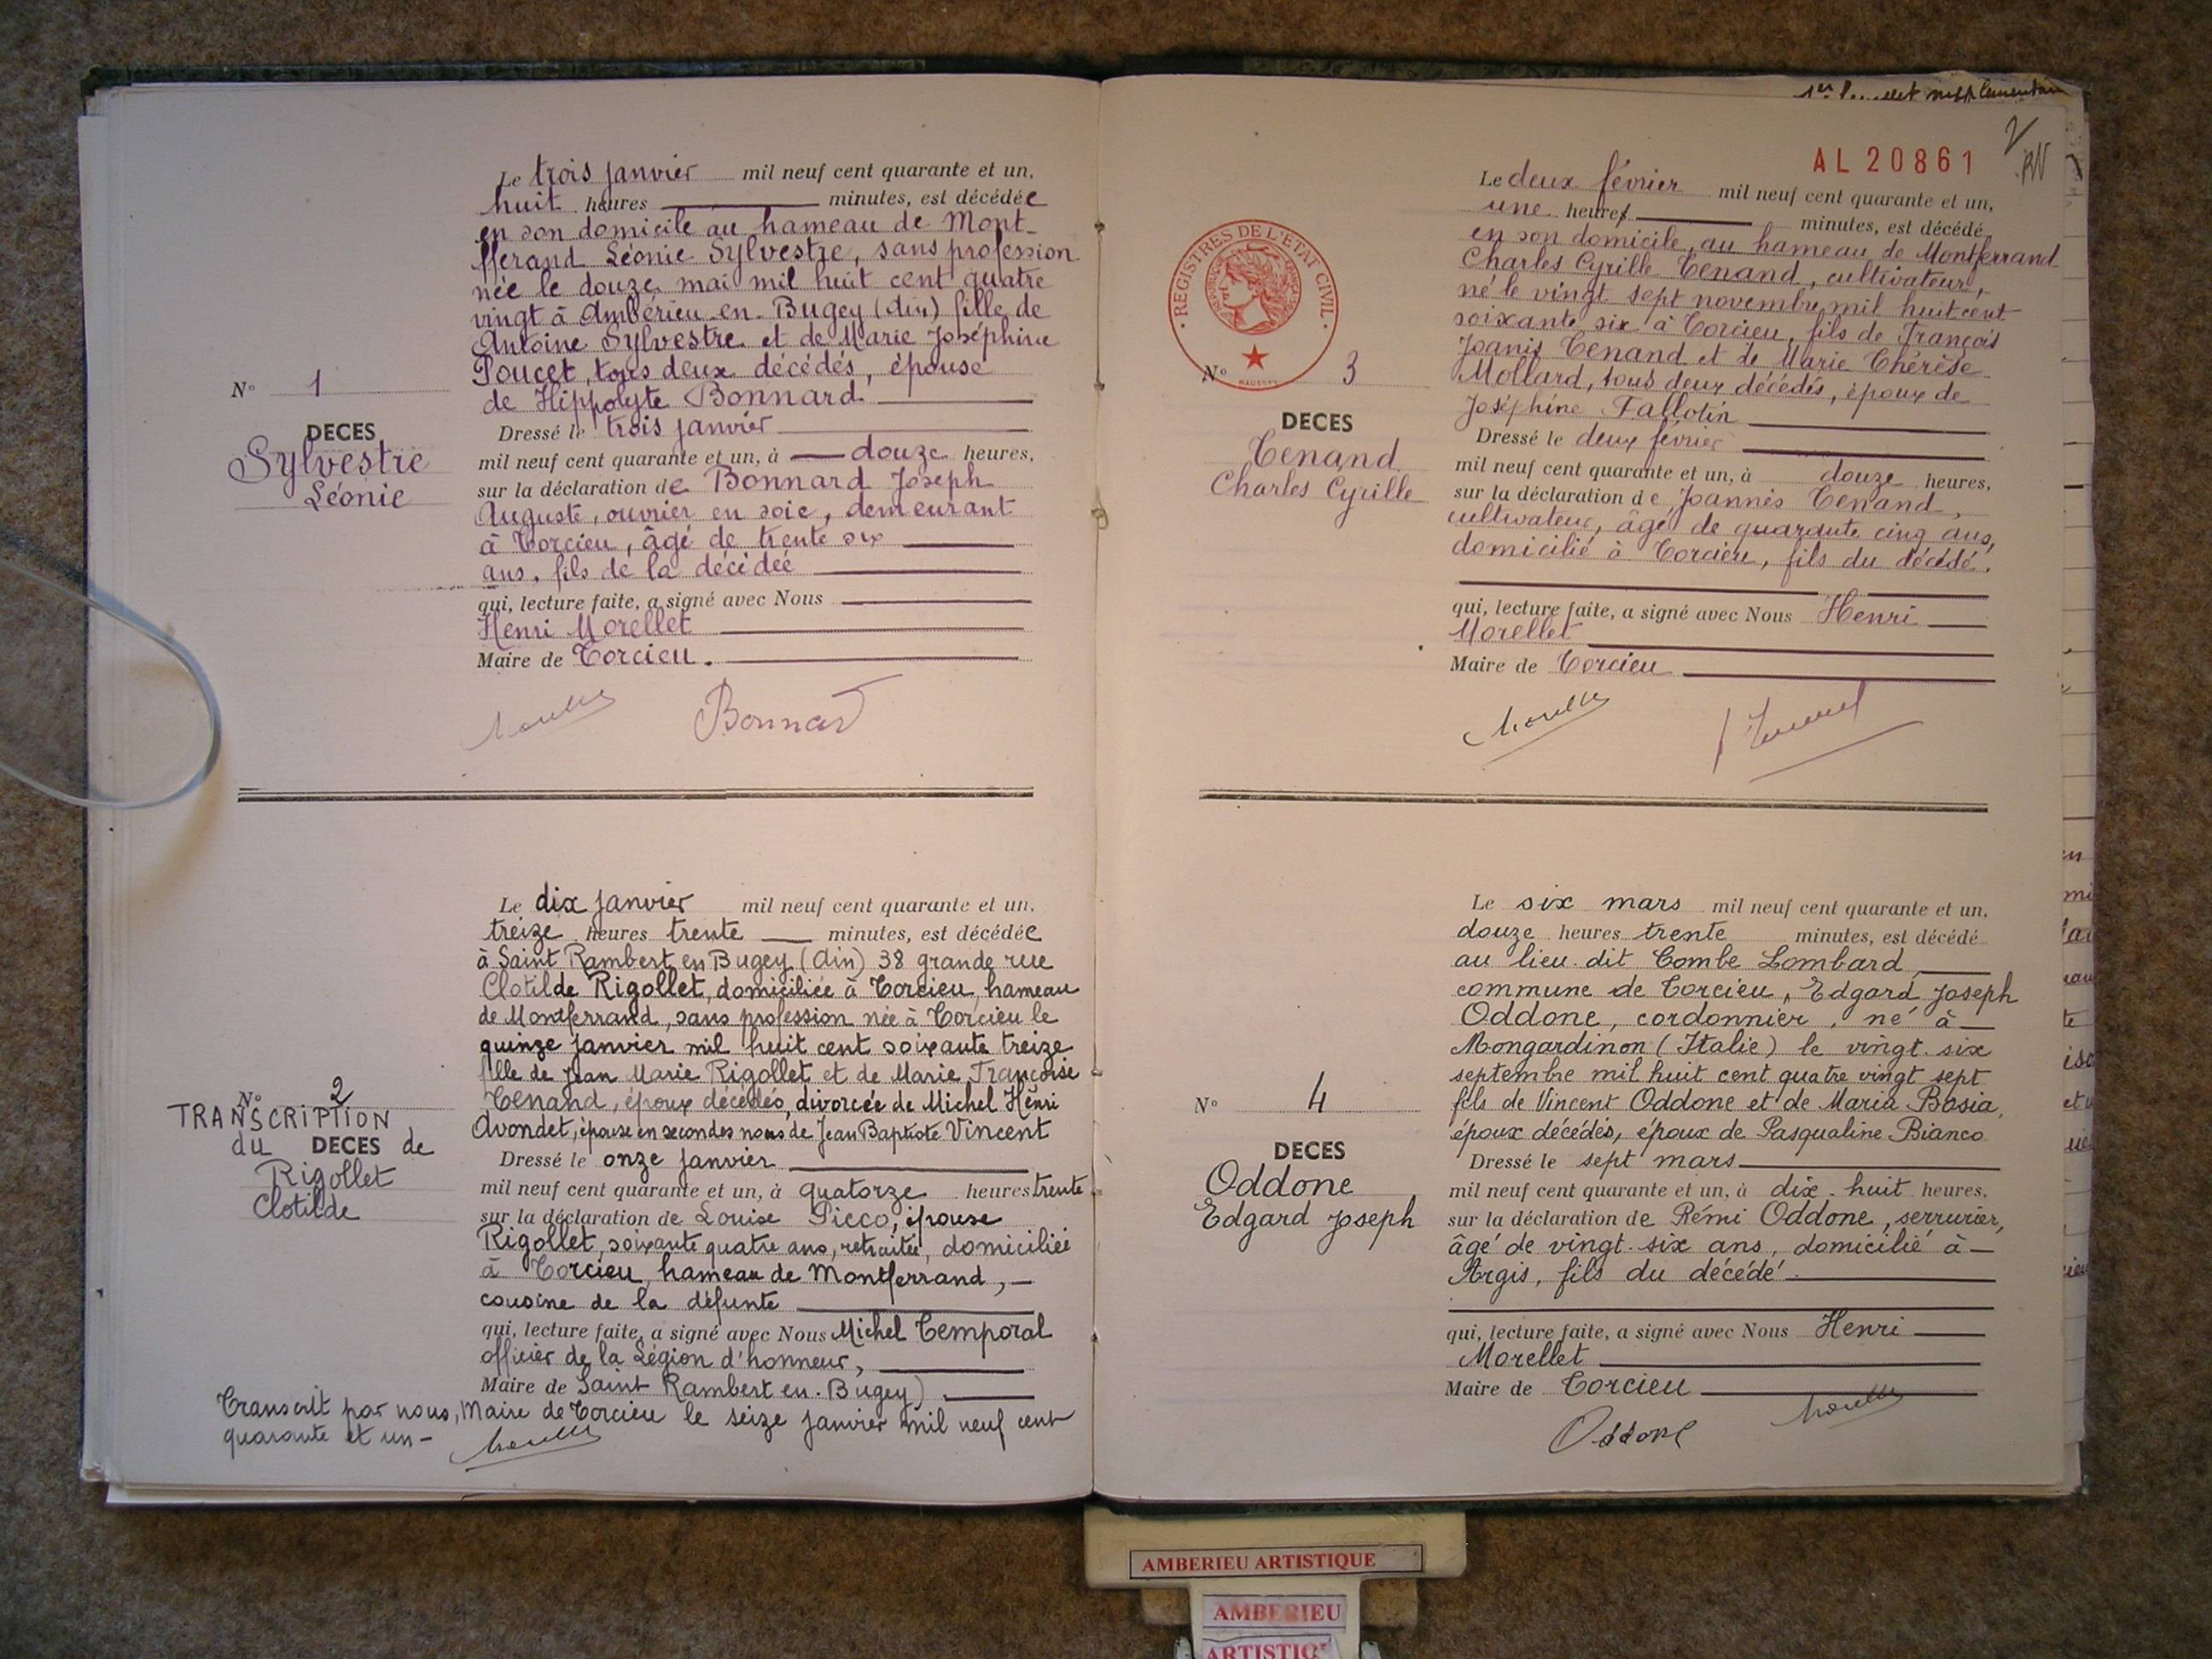 Le trois janvier mil neuf cent quarante et un,
huit heures minutes, est décédée
en son domicile au hameau de Mont-
ferrand Léonie Sylvestre, sans profession
née le douze mai mil huit cent quatre
vingt à Ambérieu-en-Bugey (Ain) fille de
Antoine Sylvestre et de Marie Joséphine
Poucet, tous deux décédés, épouse
de Hippolyte Bonnard
N° 1
DECES
Sylvestre
Léonie
Dressé le trois janvier
mil neuf cent quarante et un, à douze heures,
sur la déclaration de Bonnard Joseph
Auguste, ouvrier en soie, demeurant
à Torcieu, âgé de trente six
ans, fils de la décédée
qui, lecture faite, a signé avec Nous
Henri Morellet
Maire de Torcieu.
Bonnard
Le dix janvier mil neuf cent quarante et un,
treize heures trente minutes, est décédée
à Saint Rambert en Bugey (Ain) 38 grande rue
Clotilde Rigollet, domiciliée à Torcieu, hameau
de Montferrand, sans profession née à Torcieu le
quinze janvier mil huit cent soixante treize
fille de Jean Marie Rigollet et de Marie Françoise
Tenand, époux décédés, divorcée de Michel Henri
Avondet, épouse en secondes noces de Jean Baptiste Vincent
N° 2
TRANSCRIPTION
du DECES de
Rigollet
Clotilde
Dressé le onze janvier
mil neuf cent quarante et un, à quatorze heures trente
sur la déclaration de Louise Picco, épouse
Rigollet, soixante quatre ans, retraitée, domiciliée
à Torcieu, hameau de Montferrand,
cousine de la défunte
qui, lecture faite, a signé avec Nous Michel Temporal
officier de la Légion d'honneur,
Maire de Saint Rambert en-Bugey)
Transcrit par nous, Maire de Torcieu le seize janvier mil neuf cent
quarante et un-
1er
AL 20861
Le deux février mil neuf cent quarante et un,
une heures minutes, est décédé
en son domicile, au hameau de Montferrand
Charles Cyrille Tenand, cultivateur,
né le vingt sept novembre mil huit cent
soixante six à Torcieu, fils de François
Joanis Tenand et de Marie Thérèse
Mollard, tous deux décédés, époux de
Joséphine Fallotin
REGISTRES DE L'ETAT CIVIL
N° 3
DECES
Tenand
Charles Cyrille
Dressé le deux février
mil neuf cent quarante et un, à douze heures,
sur la déclaration de Joannès Tenand,
cultivateur, âgé de quarante cinq ans,
domicilié à Torcieu, fils du décédé.
qui, lecture faite, a signé avec Nous Henri
Morellet
Maire de Torcieu
Le six mars mil neuf cent quarante et un,
douze heures trente minutes, est décédé
au lieu-dit Combe Lombard
commune de Torcieu, Edgard Joseph
Oddone, cordonnier, né à
Mongardinon (Italie) le vingt-six
septembre mil huit cent quatre vingt sept
fils de Vincent Oddone et de Maria Bosia,
époux décédés, époux de Pasqualine Bianco
N° 4
DECES
Oddone
Edgard Joseph
Dressé le sept mars
mil neuf cent quarante et un, à dix-huit heures,
sur la déclaration de Rémi Oddone, serrurier,
âgé de vingt-six ans, domicilié à
Argis, fils du décédé.
qui, lecture faite, a signé avec Nous Henri
Morellet
Maire de Torcieu
Oddone
AMBERIEU ARTISTIQUE
AMBERIEU